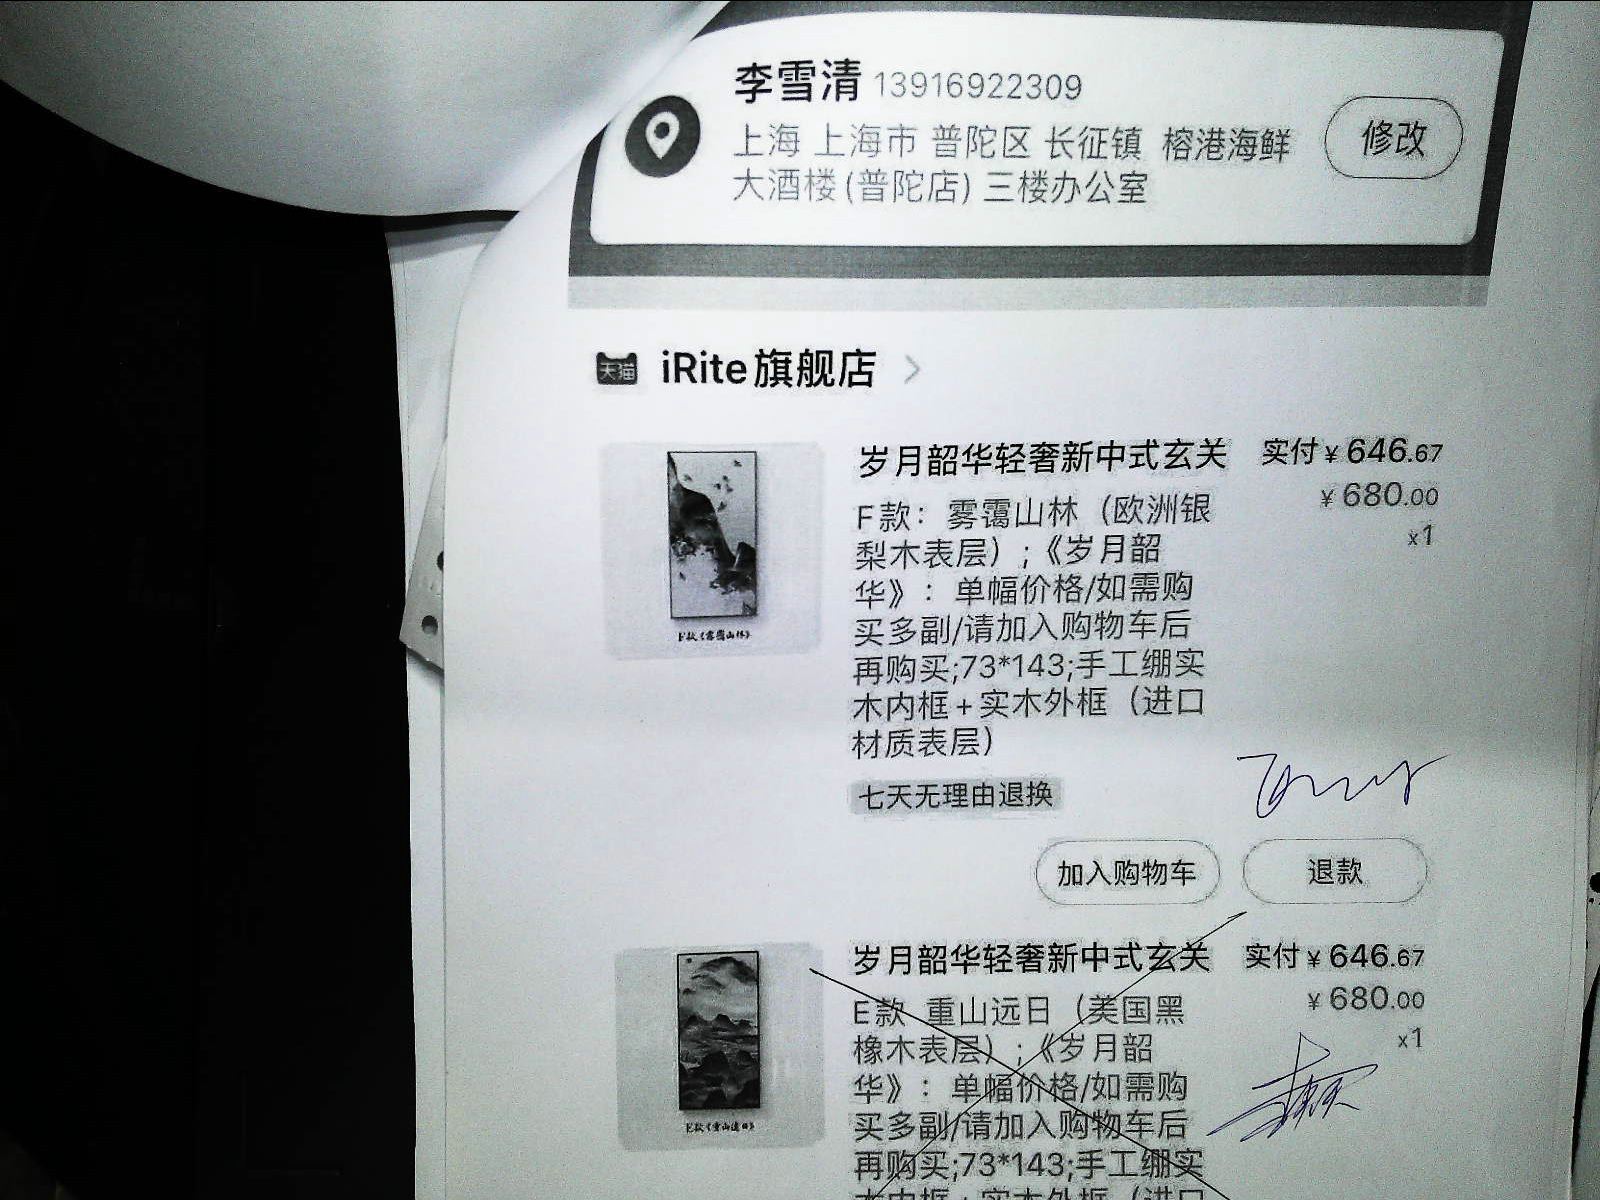 李雪清 13916922309
上海 上海市 普陀区 长征镇 榕港海鲜
大酒楼(普陀店) 三楼办公室
修改
天猫 iRite旗舰店
岁月韶华轻奢新中式玄关 实付¥646.67
F款：雾霭山林（欧洲银 ¥680.00
梨木表层）;《岁月韶 x1
华》：单幅价格/如需购
买多副/请加入购物车后
再购买;73*143;手工绷实
木内框+实木外框（进口
材质表层）
F款《雾霭山林》
七天无理由退换
加入购物车 退款
岁月韶华轻奢新中式玄关 实付¥646.67
E款 重山远日（美国黑 ¥680.00
橡木表层）;《岁月韶 x1
华》：单幅价格/如需购
买多副/请加入购物车后
再购买;73*143;手工绷实
木内框+实木外框（进口
E款《重山远日》